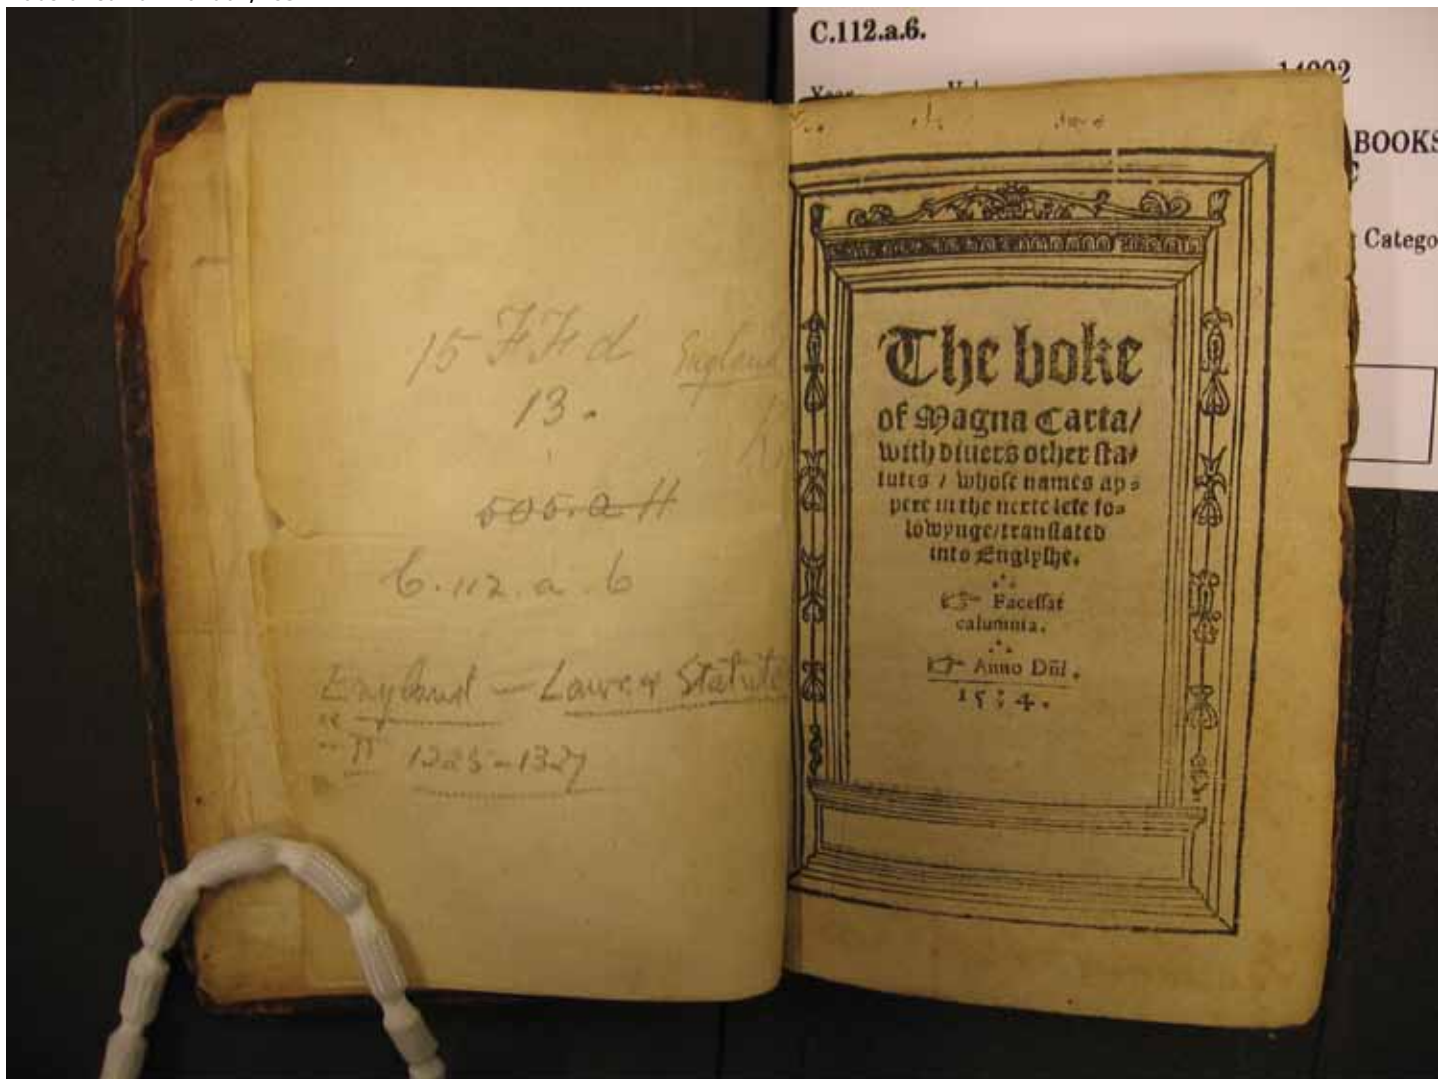 C.112.a.6.
14002
BOOKS
Catego
15 FF d England
13.
505.a
C.112.a.6
England — Laws & Statute
II 1225-1327
The boke
of Magna Carta/
with diuers other sta/
tutes / whose names ap⸗
pere in the nexte lefe fo⸗
lowynge/translated
into Englyshe.
☞ Facessat
calumnia.
☞ Anno Dñi.
1534.